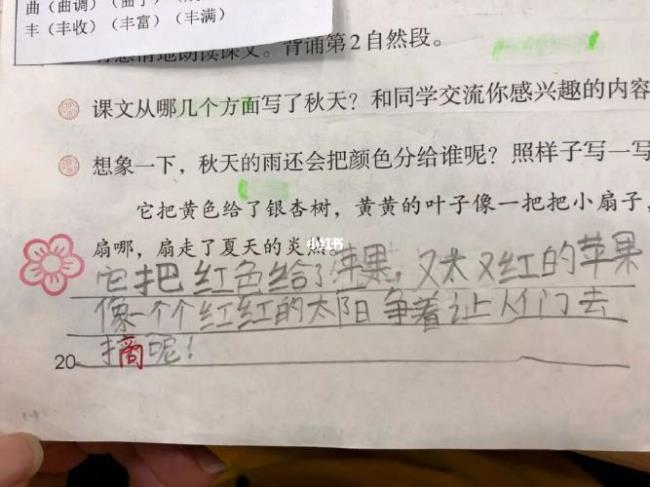 丰（丰收）（丰富）（丰满）
朗读课文。背诵第2自然段。
课文从哪几个方面写了秋天？和同学交流你感兴趣的内容
想象一下，秋天的雨还会把颜色分给谁呢？照样子写一写
它把黄色给了银杏树，黄黄的叶子像一把把小扇子，
扇哪，扇走了夏天的炎热。
小红书
它把红色给了苹果，又大又红的苹果
像一个个红红的太阳争着让人们去
摘呢！
20